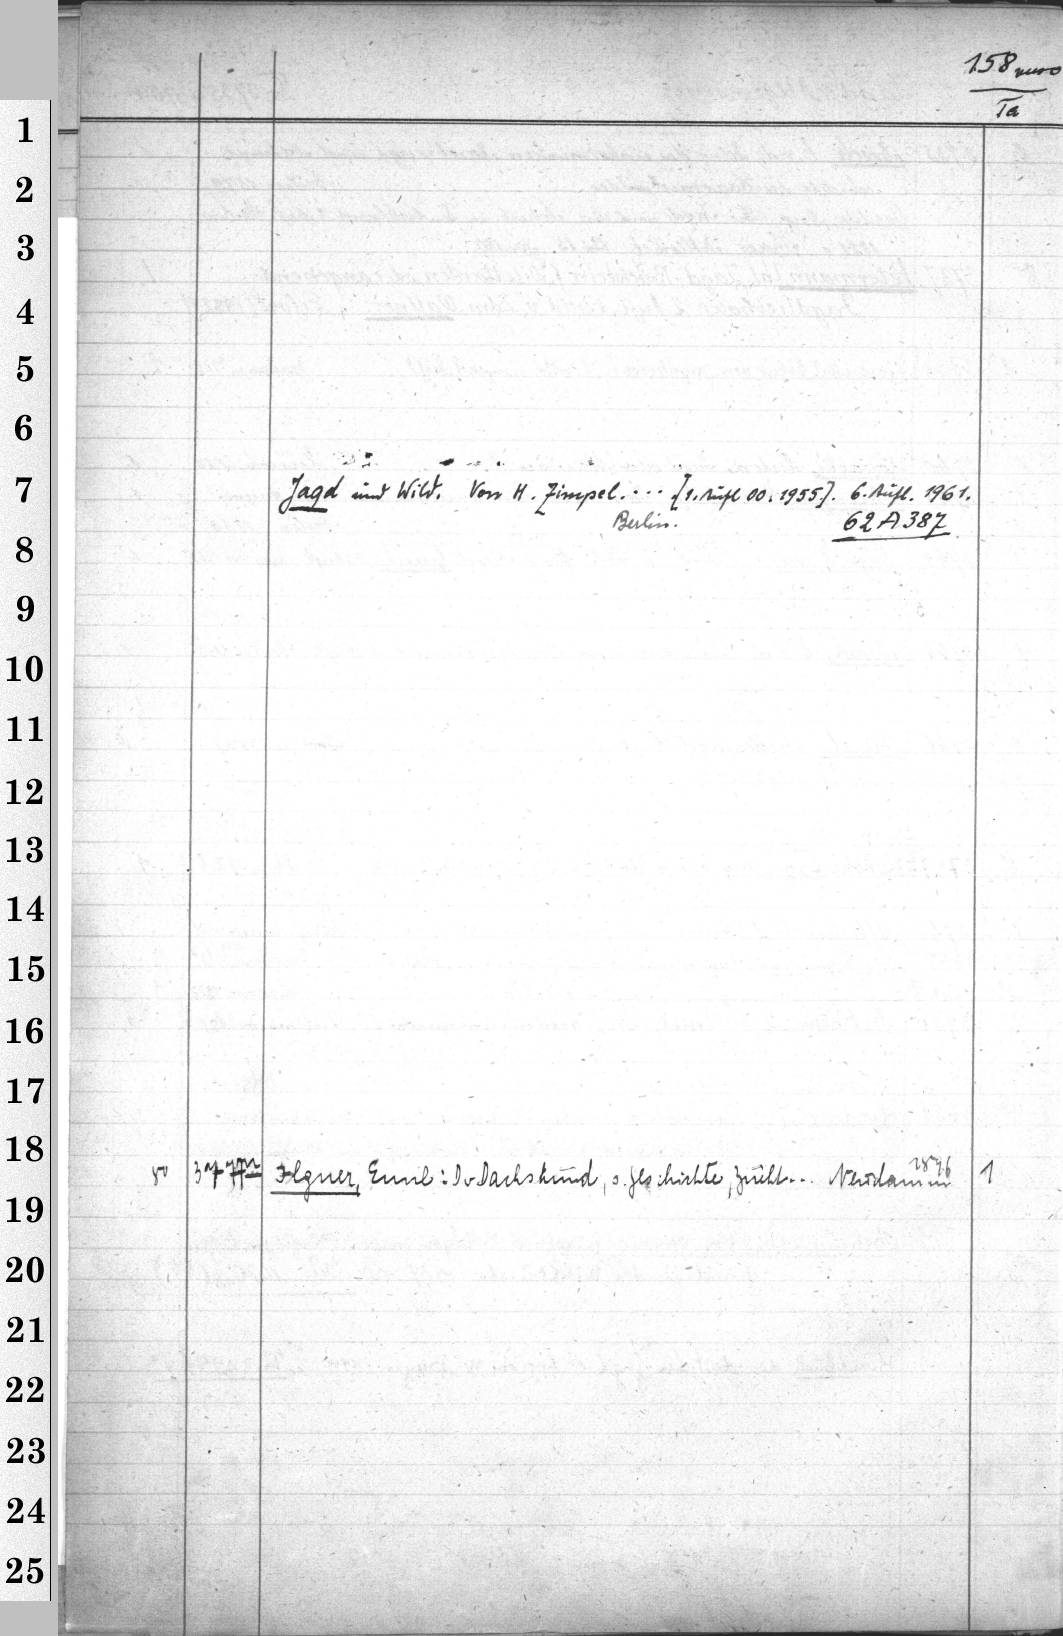 158
Ta
1
2
3
4
5
6
7
Jagd und Wild. Von H. Zimpel. ... [1. Aufl 00. 1955]. 6. Aufl. 1961.
Berlin.
62 A 387
8
9
10
11
12
13
14
15
16
17
18
8° Ilgner, Emil: D. Dachshund, s. Geschichte, Zucht... Neudamm 1896 1
19
20
21
22
23
24
25